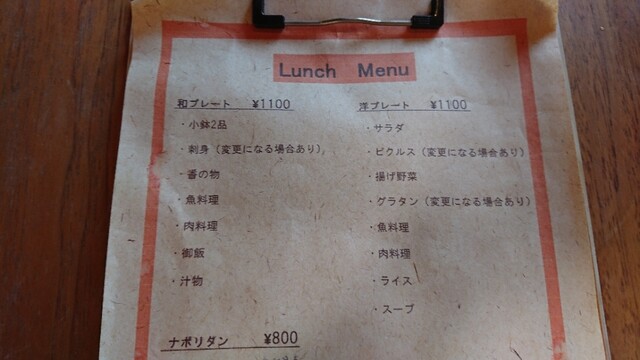 Lunch Menu
和プレート ¥1100
・小鉢2品
・刺身（変更になる場合あり）
・香の物
・魚料理
・肉料理
・御飯
・汁物
洋プレート ¥1100
・サラダ
・ピクルス（変更になる場合あり）
・揚げ野菜
・グラタン（変更になる場合あり）
・魚料理
・肉料理
・ライス
・スープ
ナポリタン ¥800